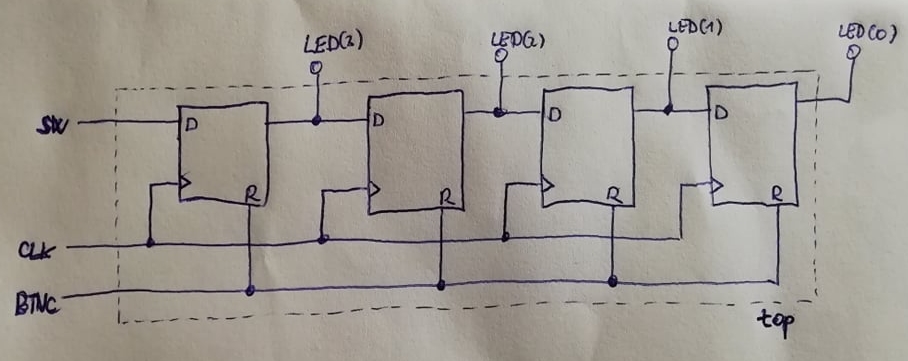 LED(3) LED(2) LED(1) LED(0)
SW D D D D
R R R R
CLK
BTNC
top